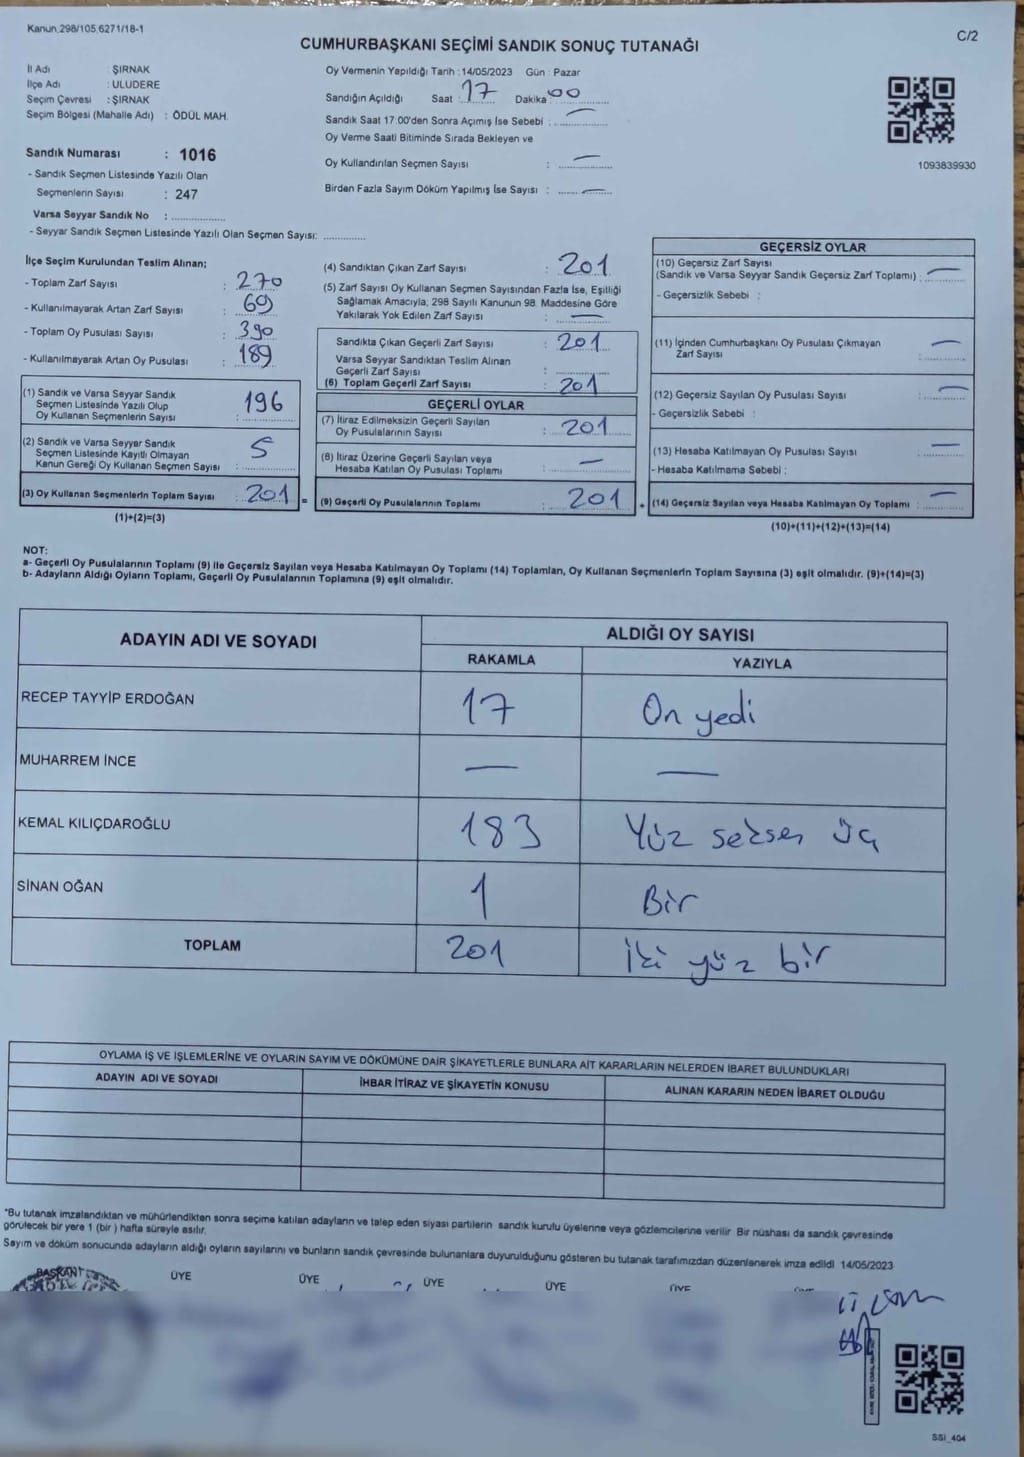 Kanun 298/105,6271/18-1
C/2
CUMHURBAŞKANI SEÇİMİ SANDIK SONUÇ TUTANAĞI
İl Adı : ŞIRNAK
İlçe Adı : ULUDERE
Seçim Çevresi : ŞIRNAK
Seçim Bölgesi (Mahalle Adı) : ÖDÜL MAH.
Sandık Numarası : 1016
- Sandık Seçmen Listesinde Yazılı Olan
Seçmenlerin Sayısı : 247
Varsa Seyyar Sandık No :
- Seyyar Sandık Seçmen Listesinde Yazılı Olan Seçmen Sayısı:
Oy Vermenin Yapıldığı Tarih : 14/05/2023 Gün : Pazar
Sandığın Açıldığı Saat : 17 Dakika 00
Sandık Saat 17:00'den Sonra Açımış İse Sebebi : —
Oy Verme Saati Bitiminde Sırada Bekleyen ve
Oy Kullandırılan Seçmen Sayısı : —
Birden Fazla Sayım Döküm Yapılmış İse Sayısı : —
1093839930
İlçe Seçim Kurulundan Teslim Alınan;
- Toplam Zarf Sayısı : 270
- Kullanılmayarak Artan Zarf Sayısı : 69
- Toplam Oy Pusulası Sayısı : 390
- Kullanılmayarak Artan Oy Pusulası : 189
(1) Sandık ve Varsa Seyyar Sandık
Seçmen Listesinde Yazılı Olup
Oy Kullanan Seçmenlerin Sayısı : 196
(2) Sandık ve Varsa Seyyar Sandık
Seçmen Listesinde Kayıtlı Olmayan
Kanun Gereği Oy Kullanan Seçmen Sayısı : 5
(3) Oy Kullanan Seçmenlerin Toplam Sayısı : 201 =
(1)+(2)=(3)
(4) Sandıktan Çıkan Zarf Sayısı : 201
(5) Zarf Sayısı Oy Kullanan Seçmen Sayısından Fazla İse, Eşitliği
Sağlamak Amacıyla, 298 Sayılı Kanunun 98. Maddesine Göre
Yakılarak Yok Edilen Zarf Sayısı : —
Sandıkta Çıkan Geçerli Zarf Sayısı : 201
Varsa Seyyar Sandıktan Teslim Alınan
Geçerli Zarf Sayısı :
(6) Toplam Geçerli Zarf Sayısı : 201
GEÇERLİ OYLAR
(7) İtiraz Edilmeksizin Geçerli Sayılan
Oy Pusulalarının Sayısı : 201
(8) İtiraz Üzerine Geçerli Sayılan veya
Hesaba Katılan Oy Pusulası Toplamı : —
(9) Geçerli Oy Pusulalarının Toplamı : 201 +
GEÇERSİZ OYLAR
(10) Geçersiz Zarf Sayısı
(Sandık ve Varsa Seyyar Sandık Geçersiz Zarf Toplamı) : —
- Geçersizlik Sebebi :
(11) İçinden Cumhurbaşkanı Oy Pusulası Çıkmayan
Zarf Sayısı : —
(12) Geçersiz Sayılan Oy Pusulası Sayısı : —
- Geçersizlik Sebebi :
(13) Hesaba Katılmayan Oy Pusulası Sayısı : —
- Hesaba Katılmama Sebebi :
(14) Geçersiz Sayılan veya Hesaba Katılmayan Oy Toplamı : —
(10)+(11)+(12)+(13)=(14)
NOT:
a- Geçerli Oy Pusulalarının Toplamı (9) ile Geçersiz Sayılan veya Hesaba Katılmayan Oy Toplamı (14) Toplamları, Oy Kullanan Seçmenlerin Toplam Sayısına (3) eşit olmalıdır. (9)+(14)=(3)
b- Adayların Aldığı Oyların Toplamı, Geçerli Oy Pusulalarının Toplamına (9) eşit olmalıdır.
ADAYIN ADI VE SOYADI
ALDIĞI OY SAYISI
RAKAMLA YAZIYLA
RECEP TAYYİP ERDOĞAN 17 On yedi
MUHARREM İNCE — —
KEMAL KILIÇDAROĞLU 183 Yüz seksen üç
SİNAN OĞAN 1 Bir
TOPLAM 201 İki yüz bir
OYLAMA İŞ VE İŞLEMLERİNE VE OYLARIN SAYIM VE DÖKÜMÜNE DAİR ŞİKAYETLERLE BUNLARA AİT KARARLARIN NELERDEN İBARET BULUNDUKLARI
ADAYIN ADI VE SOYADI İHBAR İTİRAZ VE ŞİKAYETİN KONUSU ALINAN KARARIN NEDEN İBARET OLDUĞU
*Bu tutanak imzalandıktan ve mühürlendikten sonra seçime katılan adayların ve talep eden siyasi partilerin sandık kurulu üyelerine veya gözlemcilerine verilir. Bir nüshası da sandık çevresinde
görülecek bir yere 1 (bir ) hafta süreyle asılır.
Sayım ve döküm sonucunda adayların aldığı oyların sayılarını ve bunların sandık çevresinde bulunanlara duyurulduğunu gösteren bu tutanak tarafımızdan düzenlenerek imza edildi 14/05/2023
BAŞKAN ÜYE ÜYE ÜYE ÜYE ÜYE
SSI_404